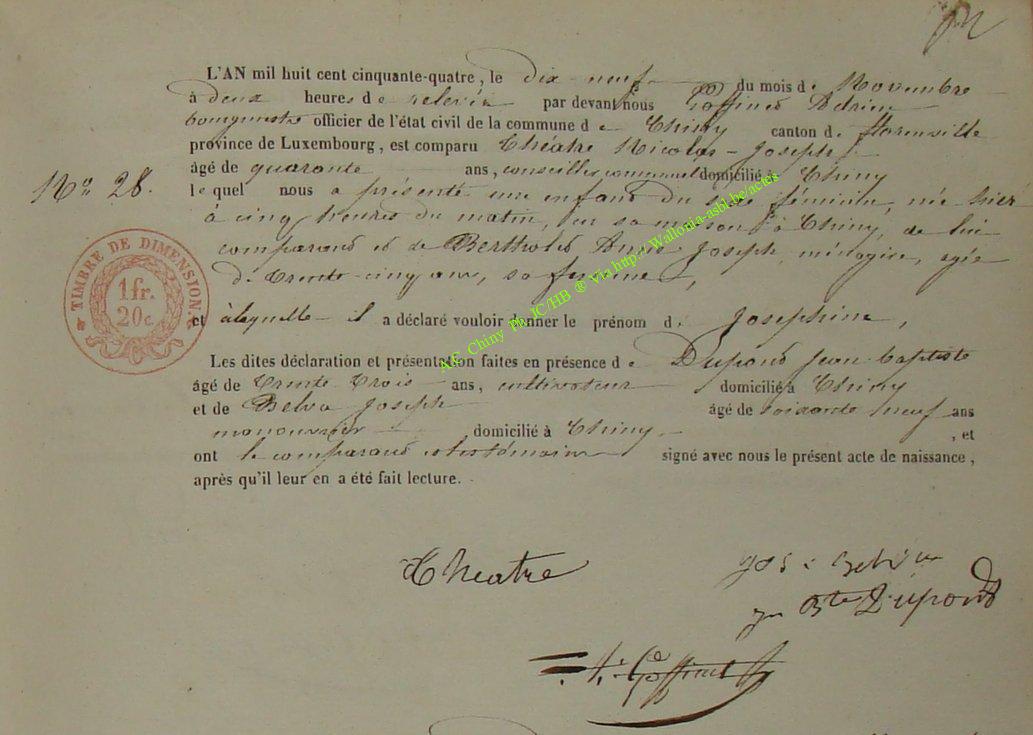 L'AN mil huit cent cinquante-quatre, le dix neuf du mois de Novembre
à deux heures de relevée par devant nous Goffinet Adrien
bourgmestre officier de l'état civil de la commune de Chiny canton de florenville
province de Luxembourg, est comparu Théâtre Nicolas-Joseph,
âgé de quarante ans, conseiller communal domicilié à Chiny
le quel nous a présenté une enfant du sexe féminin, née hier
No 28.
à cinq heures du matin, en sa maison à Chiny, de lui
comparant et de Bertholet Anne Joseph, ménagère, agée
de trente-cinq ans, sa femme,
TIMBRE DE DIMENSION.
1 fr.
20c
et à laquelle il a déclaré vouloir donner le prénom de Josephine,
Les dites déclaration et présentation faites en présence de Dupond Jean baptiste
âgé de trente trois ans, cultivateur domicilié à Chiny
et de Belva Joseph âgé de soixante neuf ans
manouvrier domicilié à Chiny , et
ont le comparant et les témoins signé avec nous le présent acte de naissance,
après qu'il leur en a été fait lecture.
Theatre
jn Bte Dupond
A. Goffinet
A.E. Chiny Ph JC/HB ® Via http://Wallonia-asbl.be/actes